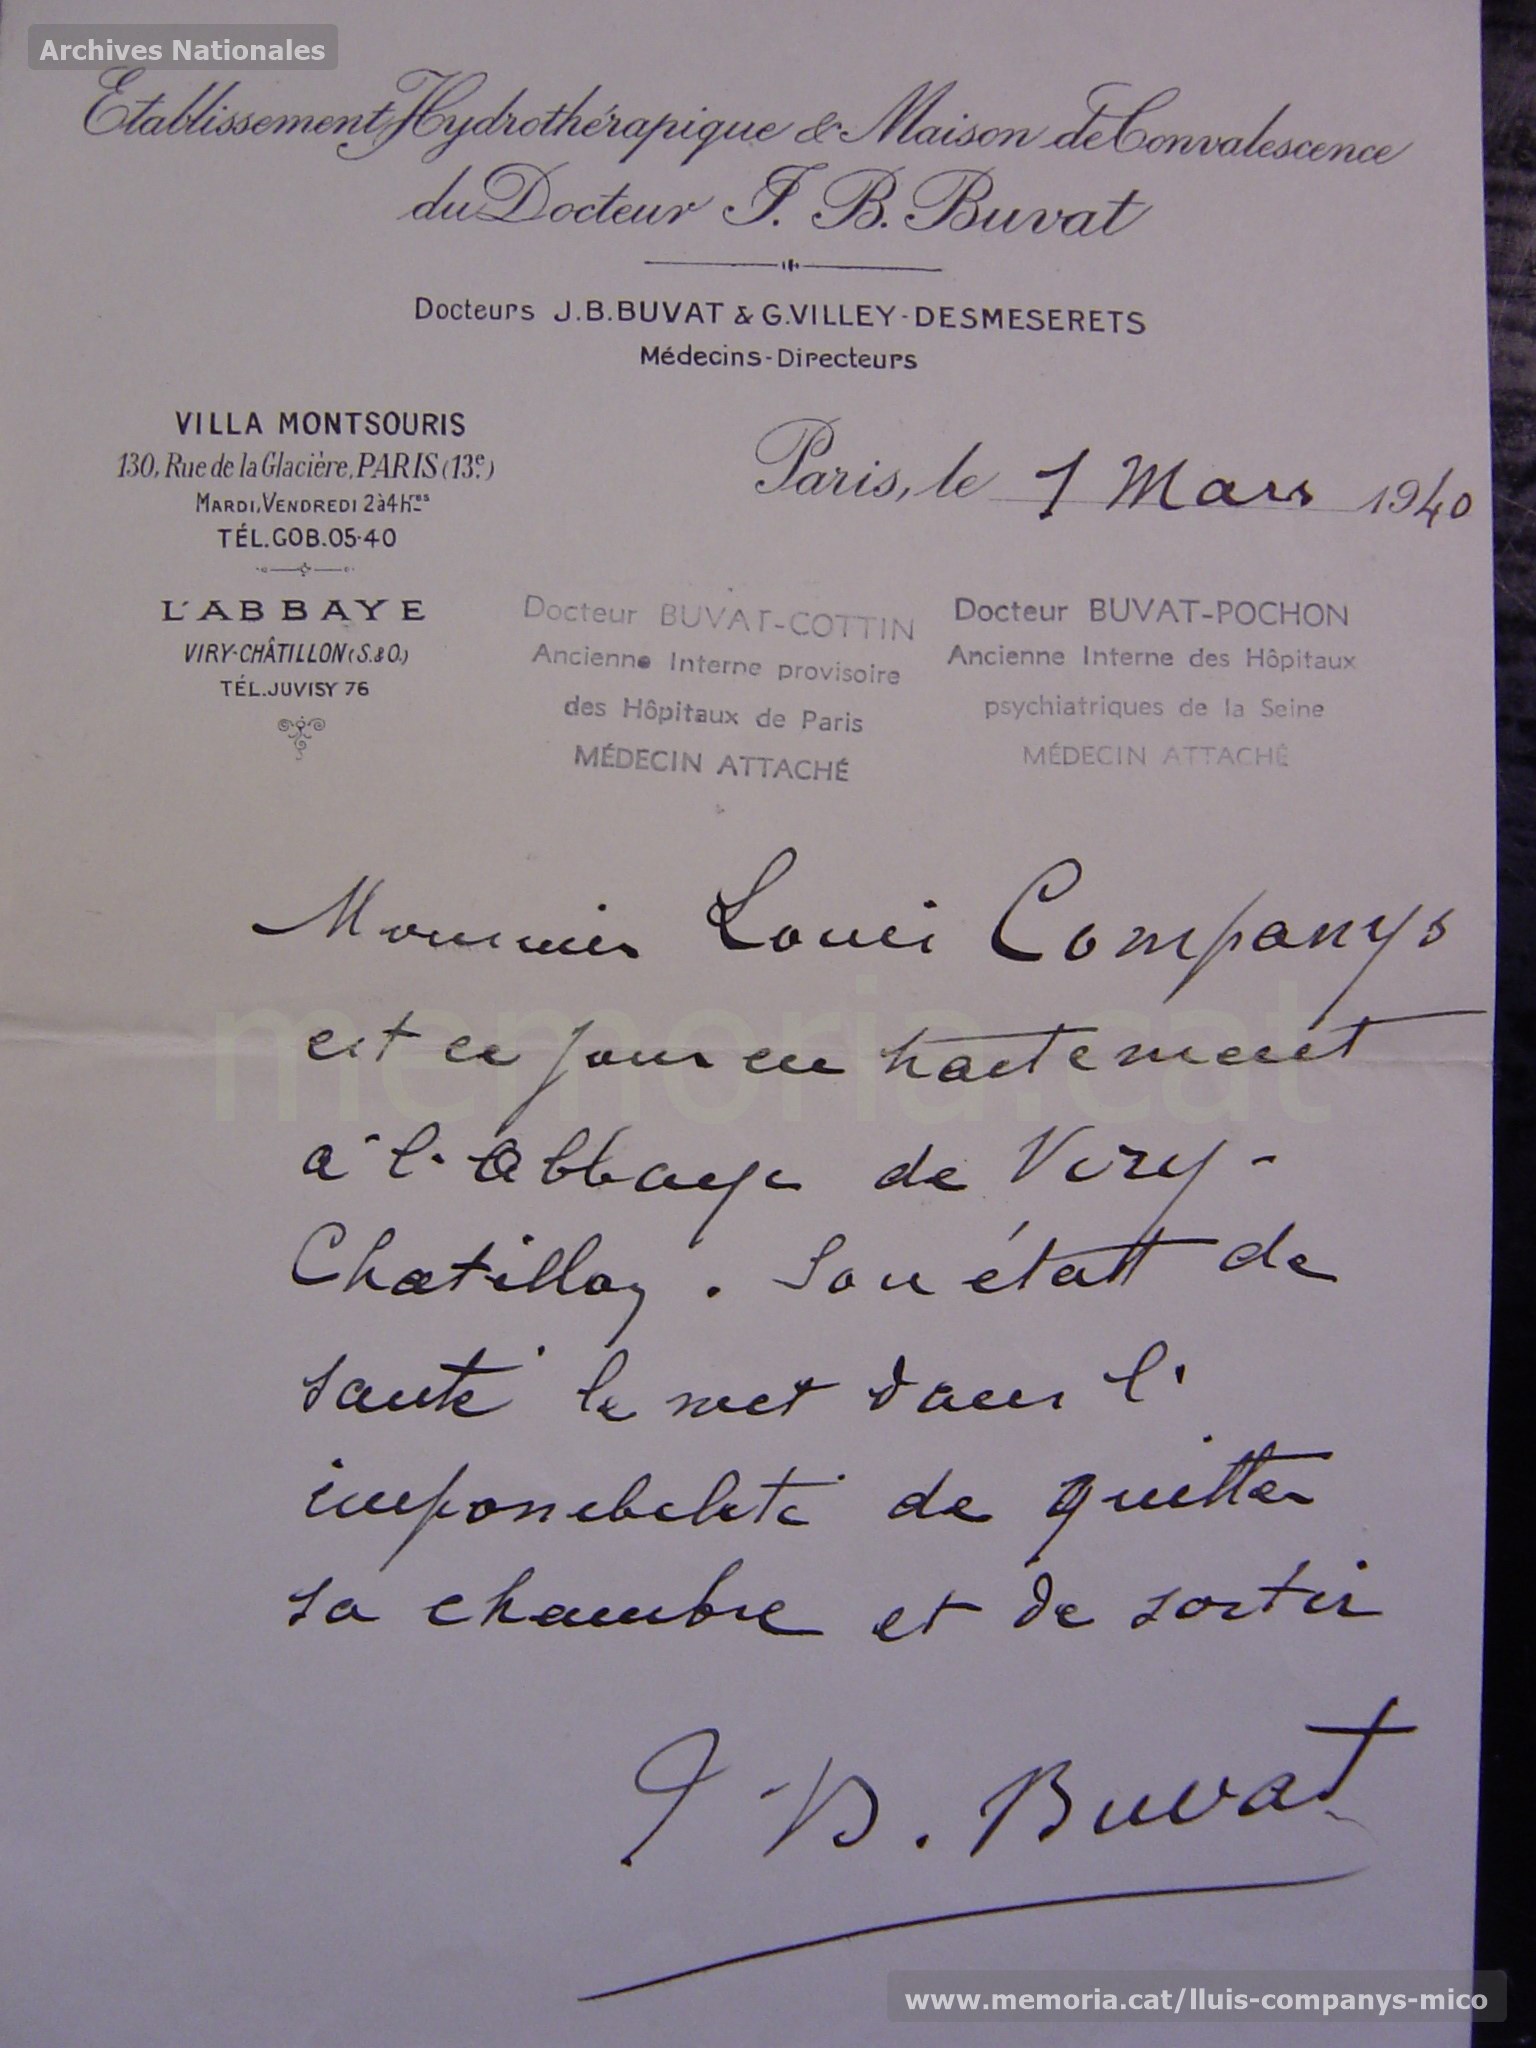 Archives Nationales
Etablissement Hydrothérapique & Maison de Convalescence
du Docteur J. B. Buvat
Docteurs J.B.BUVAT & G.VILLEY-DESMESERETS
Médecins-Directeurs
VILLA MONTSOURIS
130, Rue de la Glacière, PARIS (13e.)
MARDI, VENDREDI 2 à 4 hres
TÉL. GOB. 05-40
L'ABBAYE
VIRY-CHÂTILLON (S.&O.)
TÉL. JUVISY 76
Paris, le 1 Mars 1940
Docteur BUVAT-COTTIN
Ancienne Interne provisoire
des Hôpitaux de Paris
MÉDECIN ATTACHÉ
Docteur BUVAT-POCHON
Ancienne Interne des Hôpitaux
psychiatriques de la Seine
MÉDECIN ATTACHÉ
Monsieur Louis Companys
est ce jour en traitement
à l'abbaye de Viry-
Chatillon. Son état de
santé le met dans l'
impossibilité de quitter
sa chambre et de sortir
J. B. Buvat
memoria.cat
www.memoria.cat/lluis-companys-mico